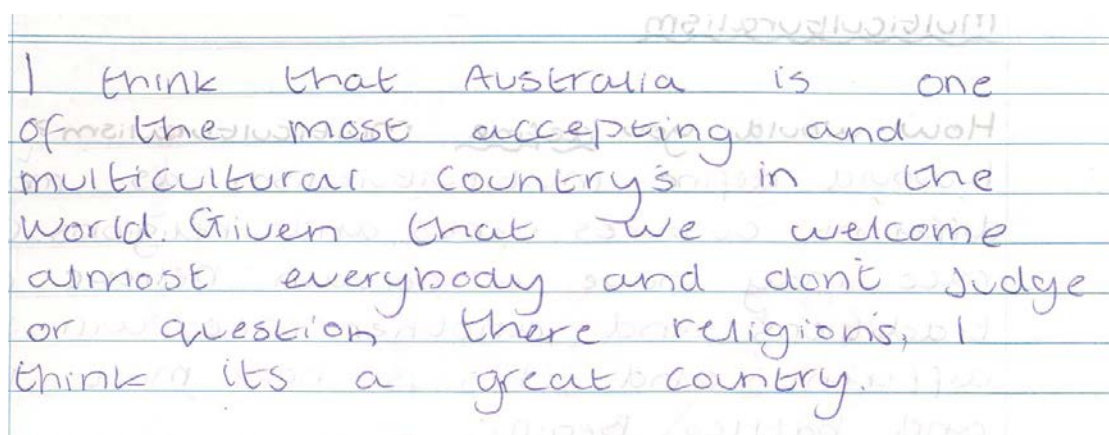 I think that Australia is one
of the most accepting and
multicultural country's in the
World. Given that we welcome
almost everybody and don't judge
or question there religion's, I
think its a great country.